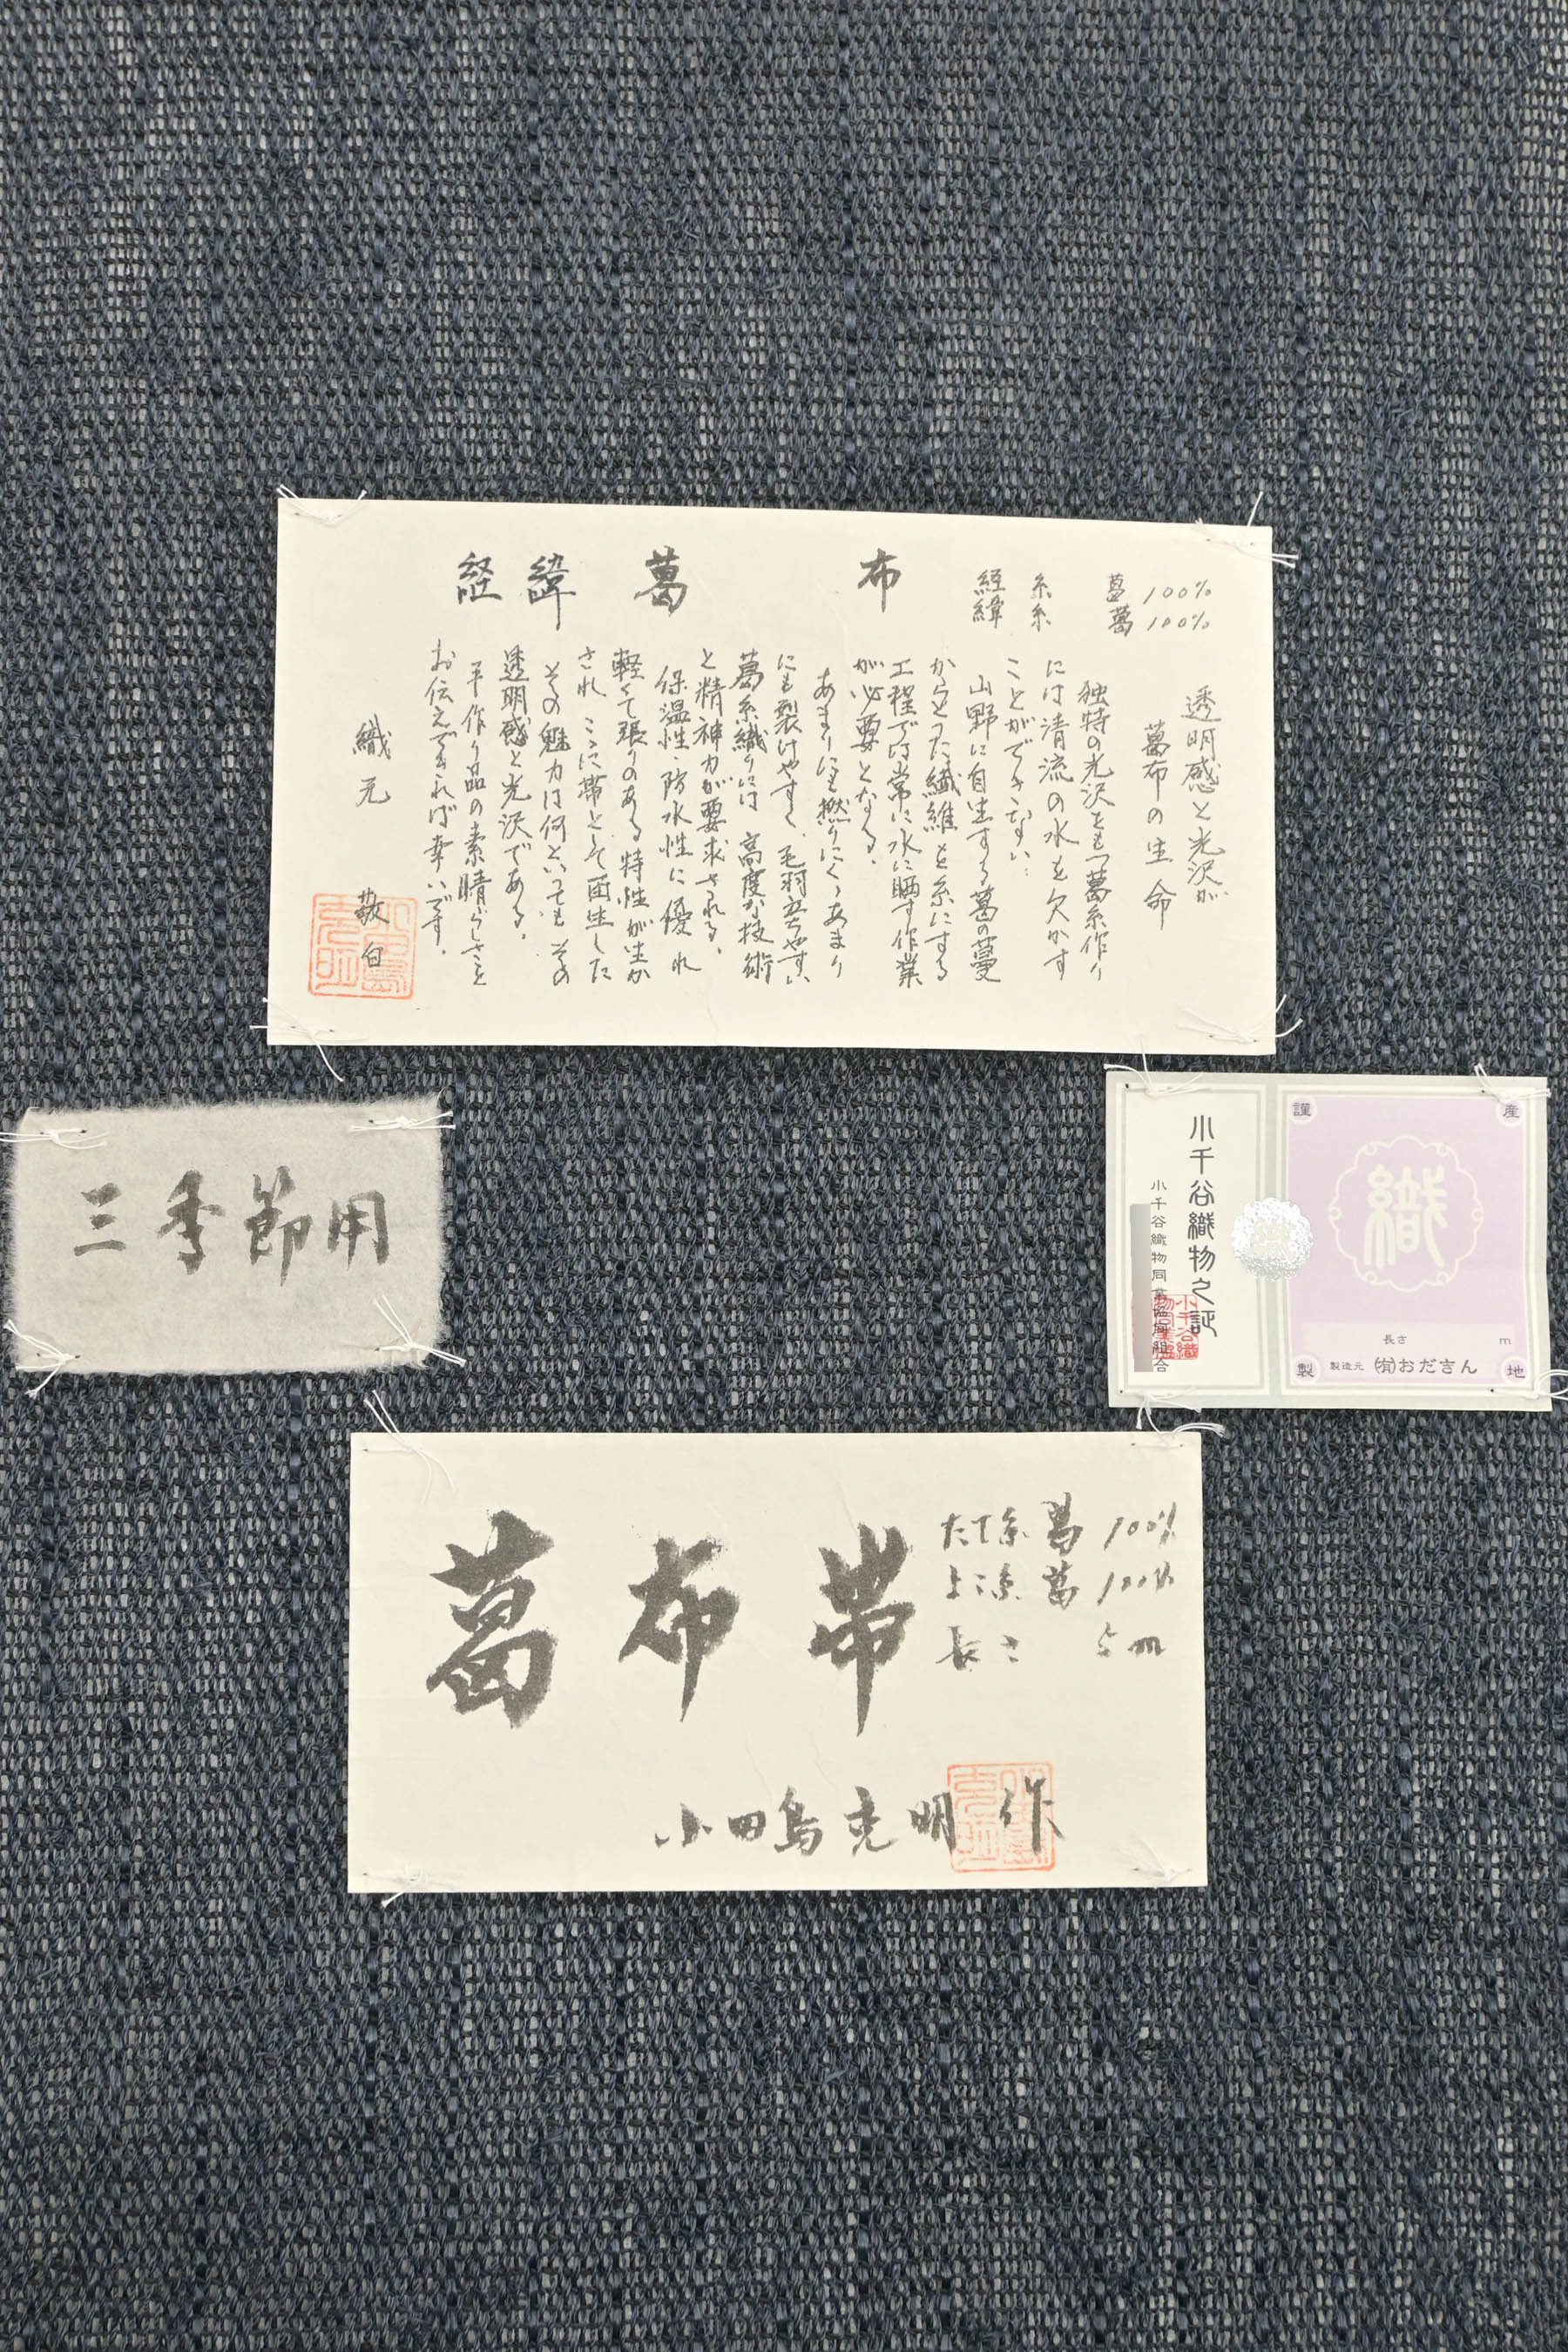 経緯葛布
経 糸 葛 100%
緯 糸 葛 100%
透明感と光沢が
葛布の生命
独特の光沢をもつ葛糸作り
には清流の水を欠かす
ことができない:
山野に自生する葛の蔓
からとった繊維を糸にする
工程では常に水に晒す作業
が必要となる。
あまりにも撚りにくくあまり
にも裂けやすく、毛羽立ちやすい
葛糸織りには 高度な技術
と精神力が要求される。
保温性・防水性に優れ
軽くて張りのある特性が生か
され こゝに帯として再生した
その魅力は何といってもその
透明感と光沢である。
手作り品の素晴らしさを
お伝えできれば幸いです。
織元 敬白
三季節用
小千谷織物之証
小千谷織物同業協同組合
謹 産
織
長さ m
製造元 ㈲おださん
製 地
葛布帯
たて糸 葛 100%
よこ糸 葛 100%
長さ 5m
小田島克明 作